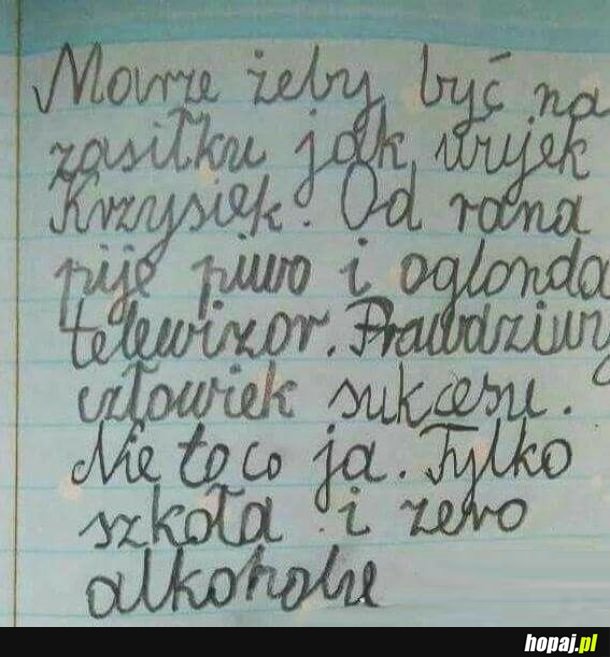 Marze żeby być na
zasiłku jak wujek
Krzysiek. Od rana
pije piwo i oglonda
telewizor. Prawdziwy
człowiek sukcesu.
Nie to co ja. Tylko
szkoła i zero
alkoholu
hopaj.pl